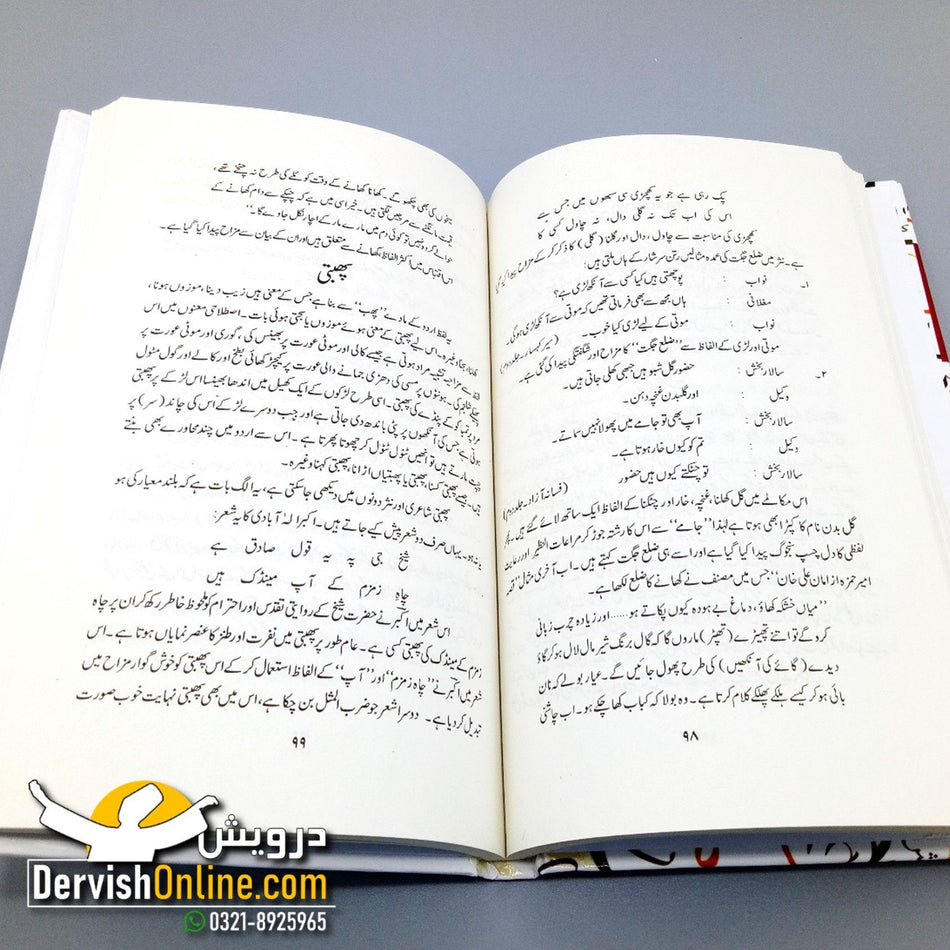 پک رہی ہے جو یہ کھچڑی سی سبھوں میں جس ہے
اس کی اب تک نہ گلی دال، نہ چاول کسی کا
کھچڑی کی مناسبت سے چاول، دال اور گلنا (گلی) کا ذکر کر کے مزاح پیدا کیا گیا
ہے۔ نثر میں ضلع جگت کی عمدہ مثالیں رتن سرشار کے ہاں ملتی ہیں:
۱۔ نواب : پوچھتی ہیں کیا کسی سے آنکھ لڑی ہے؟
مغلانی : ہاں مجھ سے بھی فرماتی تھیں کہ موتی سے آنکھ لڑی ہوگی
نواب : موتی کے لیے لڑی کیا خوب۔ (سیر کہسار، جلد دوم)
موتی اور لڑی کے الفاظ سے ”ضلع جگت“ کا مزاح اور شگفتگی پیدا کی گئی ہے۔
۲۔ سالار بخش : حضور گل شبو ہیں جبھی کھلی جاتی ہیں۔
وکیل : اور گلبدن غنچہ دہن۔
سالار بخش : آپ بھی تو جامے میں پھولا نہیں سماتے۔
وکیل : تم کو کیوں خار ہوتا ہے۔
سالار بخش : تو چٹکتے کیوں ہیں حضور (فسانہ آزاد۔ جلد دوم)
اس مکالمے میں گل کھلانا، غنچہ، خار اور چٹکنا کے الفاظ ایک ساتھ لائے گئے ہیں۔ پھر
گل بدن نام کا کپڑا بھی ہوتا ہے لہٰذا ”جامے“ سے اس کا رشتہ جوڑ کر مراعات النظیر اور رعایت
لفظی کا دل چسپ سنجوگ پیدا کیا گیا ہے اور اسے ہی ضلع جگت کہتے ہیں۔ اب آخری مثال ”قصہ
امیر حمزہ از امان علی خان“ جس میں مصنف نے کھانے کا ضلع لکھا ہے۔
”میاں خشکہ کھاؤ، دماغ بے ہودہ کیوں پکاتے ہو...... اور زیادہ چرب زبانی
کرو گے تو اتنے تھپڑے (تھپڑ) ماروں گا کہ گال برنگ شیر مال لال ہو کر گاؤ
دیدے (گائے کی آنکھیں) کی طرح پھول جائیں گے۔ عیار بولے کہ نان
بائی ہو کر کیسے ہلکے پھلکے کلام کرتا ہے۔ وہ بولا کہ کباب کھا چکے ہو۔ اب چاشنی
۹۸
سیخوں کی بھی چکھو گے۔ کھانا کھانے کے وقت کوئلے کی طرح نہ چٹخے تھے،
قیمت مانگنے سے مرچیں لگتی ہیں۔ خیر اسی میں ہے کہ چپکے سے دام کھانے کے
حوالے کرو نہیں تو کوئی دم میں مارے مار کے اچار نکل جاوے گا۔“
اس اقتباس میں اکثر الفاظ کھانے سے متعلق ہیں اور ان کے بیان سے مزاح پیدا کیا گیا ہے۔
پھبتی
یہ لفظ اردو کے مادے ”پھب“ سے بنا ہے جس کے معنی ہیں زیب دینا، موزوں ہونا،
سجنا وغیرہ۔ اس لیے پھبتی کے معنی ہوئے موزوں یا سجتی ہوئی بات۔ اصطلاحی معنوں میں اس
لفظ سے مزاحیہ تشبیہ مراد ہوتی ہے جیسے کالی اور موٹی عورت پر بھینس کی، گوری اور موٹی عورت پر
شلجم کی۔ ہونٹوں پر مسی کی دھڑی جمانے والی عورت پر کیچڑ کھائی بطخ اور کالے اور گول مٹول
کے پنڈے کی پھبتی۔ اسی طرح لڑکوں کے ایک کھیل میں اندھا بھینسا اس لڑکے پر پھبتی
ہوتی ہے جس کی آنکھوں پر پٹی باندھ دی جاتی ہے اور جب دوسرے لڑکے اس کی چاند (سر) پر
چپت مارتے ہیں تو انھیں ٹٹول ٹٹول کر چھوتا پھرتا ہے۔ اس سے اردو میں چند محاورے بھی بنتے
ہیں جیسے پھبتی کسنا، پھبتی یا پھبتیاں اڑانا، پھبتی کہنا وغیرہ۔
پھبتی شاعری اور نثر دونوں میں دیکھی جا سکتی ہے، یہ الگ بات ہے کہ بلند معیار کی ہو
یا نہ ہو۔ یہاں صرف دو شعر پیش کیے جاتے ہیں۔ اکبر الہٰ آبادی کا یہ شعر:
شیخ جی پہ یہ قول صادق ہے
چاہِ زمزم کے آپ مینڈک ہیں
اس شعر میں اکبر نے حضرت شیخ کے روایتی تقدس اور احترام کو ملحوظ خاطر رکھ کر ان پر چاہ
زمزم کے مینڈک کی پھبتی کسی ہے۔ عام طور پر پھبتی میں نفرت اور طنز کا عنصر نمایاں ہوتا ہے۔ اس
شعر میں اکبر نے ”چاہ زمزم“ اور ”آپ“ کے الفاظ استعمال کر کے اس پھبتی کو خوش گوار مزاح میں
تبدیل کر دیا ہے۔ دوسرا شعر جو ضرب المثل بن چکا ہے، اس میں بھی پھبتی نہایت خوب صورت
۹۹
درویش
DervishOnline.com
0321-8925965